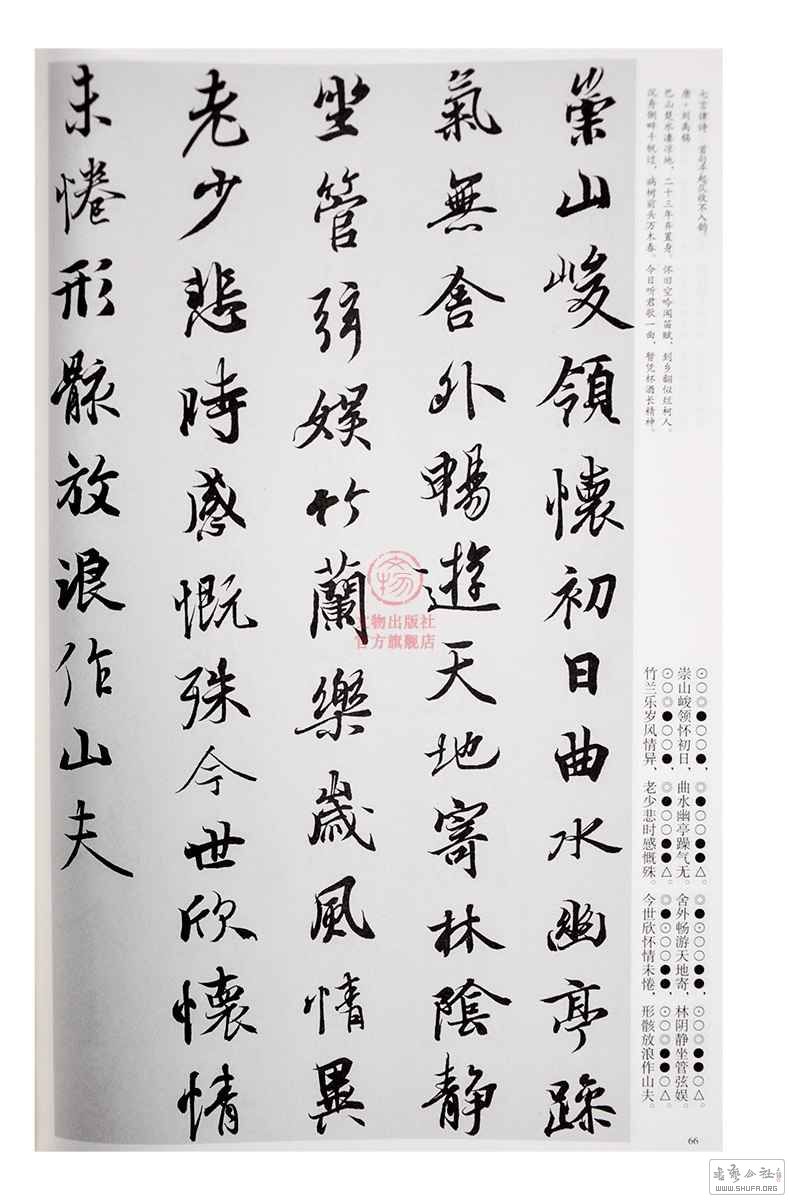 七言律诗 首句平起仄收不入韵。
唐·刘禹锡
巴山楚水凄凉地，二十三年弃置身。怀旧空吟闻笛赋，到乡翻似烂柯人。
沉舟侧畔千帆过，病树前头万木春。今日听君歌一曲，暂凭杯酒长精神。
⊙○◎●○○●，◎●○○●●△。◎●⊙○○●●，⊙○◎●●○△。
崇山峻领怀初日，曲水幽亭躁气无。舍外畅游天地寄，林阴静坐管弦娱。
⊙○◎●○○●，◎●○○●●△。◎●⊙○○●●，⊙○◎●●○△。
竹兰乐岁风情异，老少悲时感慨殊。今世欣怀情未倦，形骸放浪作山夫。
崇山峻領懷初日曲水幽亭躁
氣無舍外暢遊天地寄林陰靜
坐管弦娱竹蘭樂歲風情異
老少悲時感慨殊今世欣懷情
未惓形骸放浪作山夫
文物出版社
官方旗舰店
66
WWW.SHUFA.ORG